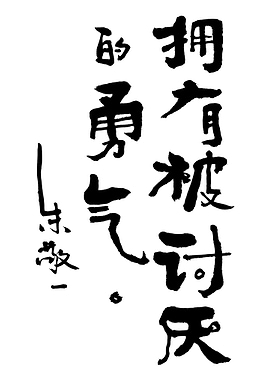 拥有被讨厌
的勇气。
朱敬一